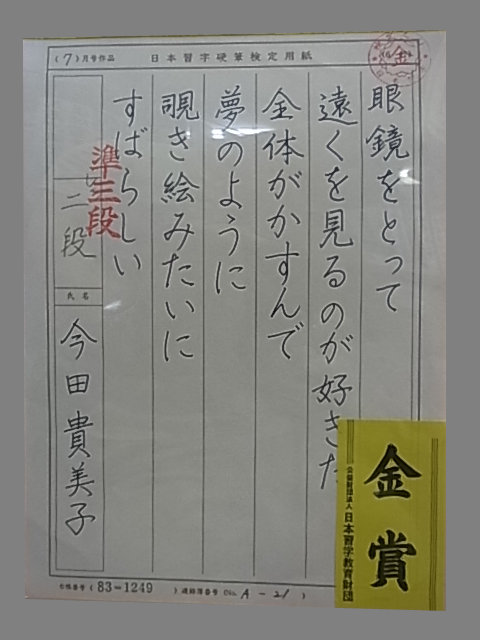 (7)月号作品 日本習字硬筆検定用紙
金
眼鏡をとって
遠くを見るのが好きだ
全体がかすんで
夢のように
覗き絵みたいに
すばらしい
準三段
二段
氏名
今田貴美子
金賞
公益財団法人 日本習字教育財団
(83-1249 ) A-21 )